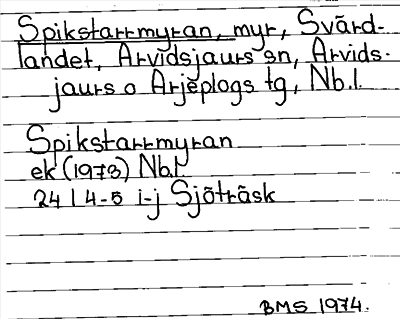 Spikstarrmyran, myr, Svärd-
landet, Arvidsjaurs sn, Arvids-
jaurs o Arjeplogs tg, Nb.l.
Spikstarrmyran
ek (1973) Nb.l.
24 I 4-5 i-j Sjöträsk
BMS 1974.